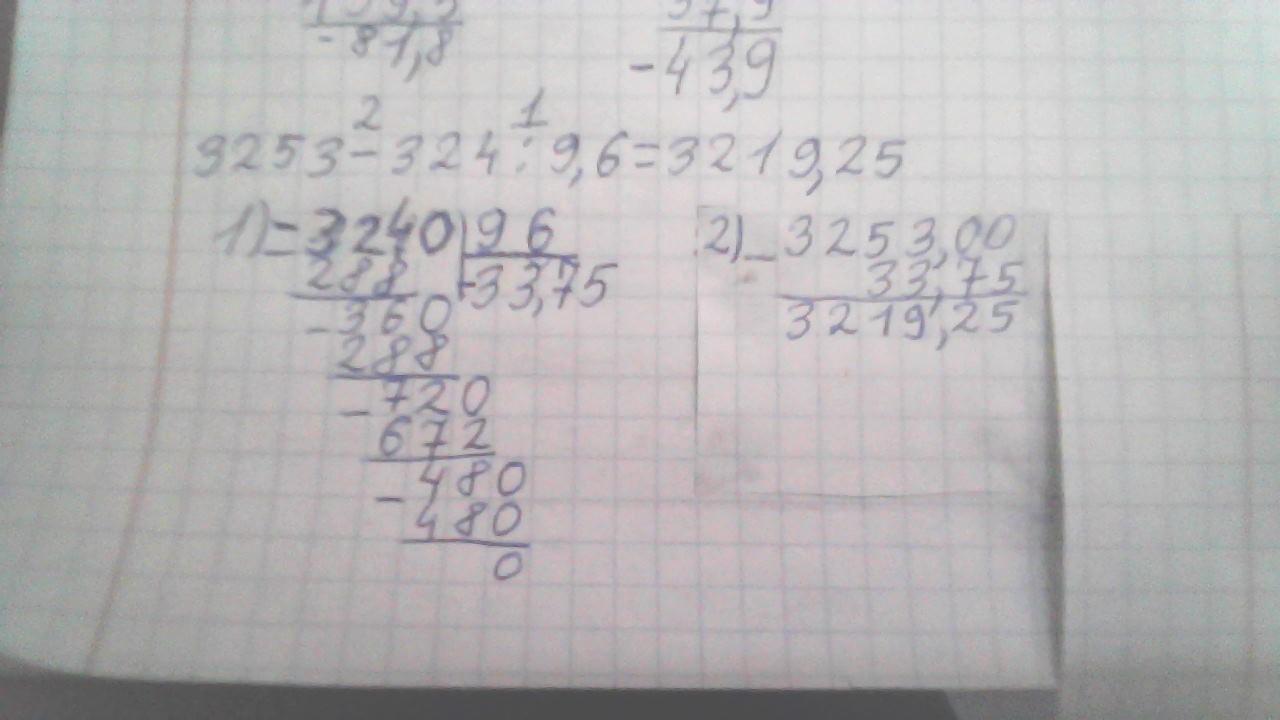 -81,8
-43,9
2 1
3253-324:9,6=3219,25
1) -3240 | 96
288 | 33,75
-360
288
-720
672
-480
480
0
2) -3253,00
33,75
3219,25